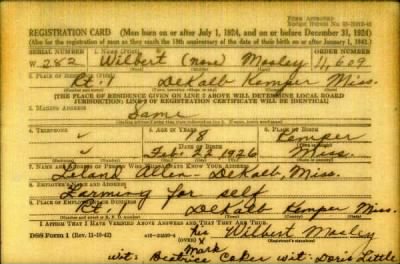 REGISTRATION CARD—(Men born on or after July 1, 1924, and on or before December 31, 1924)
(Also for the registration of men as they reach the 18th anniversary of the date of their birth on or after January 1, 1943.)
SERIAL NUMBER 1. NAME (Print) ORDER NUMBER
W 282 Wilbert (none) Mosley 11,609
2. PLACE OF RESIDENCE (Print)
Rt. 1 DeKalb Kemper Miss.
[THE PLACE OF RESIDENCE GIVEN ON LINE 2 ABOVE WILL DETERMINE LOCAL BOARD
JURISDICTION; LINE 2 OF REGISTRATION CERTIFICATE WILL BE IDENTICAL]
3. MAILING ADDRESS
Same
4. TELEPHONE 5. AGE IN YEARS 6. PLACE OF BIRTH
18 Kemper
DATE OF BIRTH
Feb. 22 1926 Miss.
7. NAME AND ADDRESS OF PERSON WHO WILL ALWAYS KNOW YOUR ADDRESS
Leland Allen - DeKalb, Miss.
8. EMPLOYER'S NAME AND ADDRESS
Farming for self
9. PLACE OF EMPLOYMENT OR BUSINESS
Rt DeKalb Kemper Miss.
I AFFIRM THAT I HAVE VERIFIED ABOVE ANSWERS AND THAT THEY ARE TRUE.
DSS Form 1 (Rev. 11-10-42) (OVER) his X Mark Wilbert Mosley
wit: Beatrice Coker wit: Doris Little